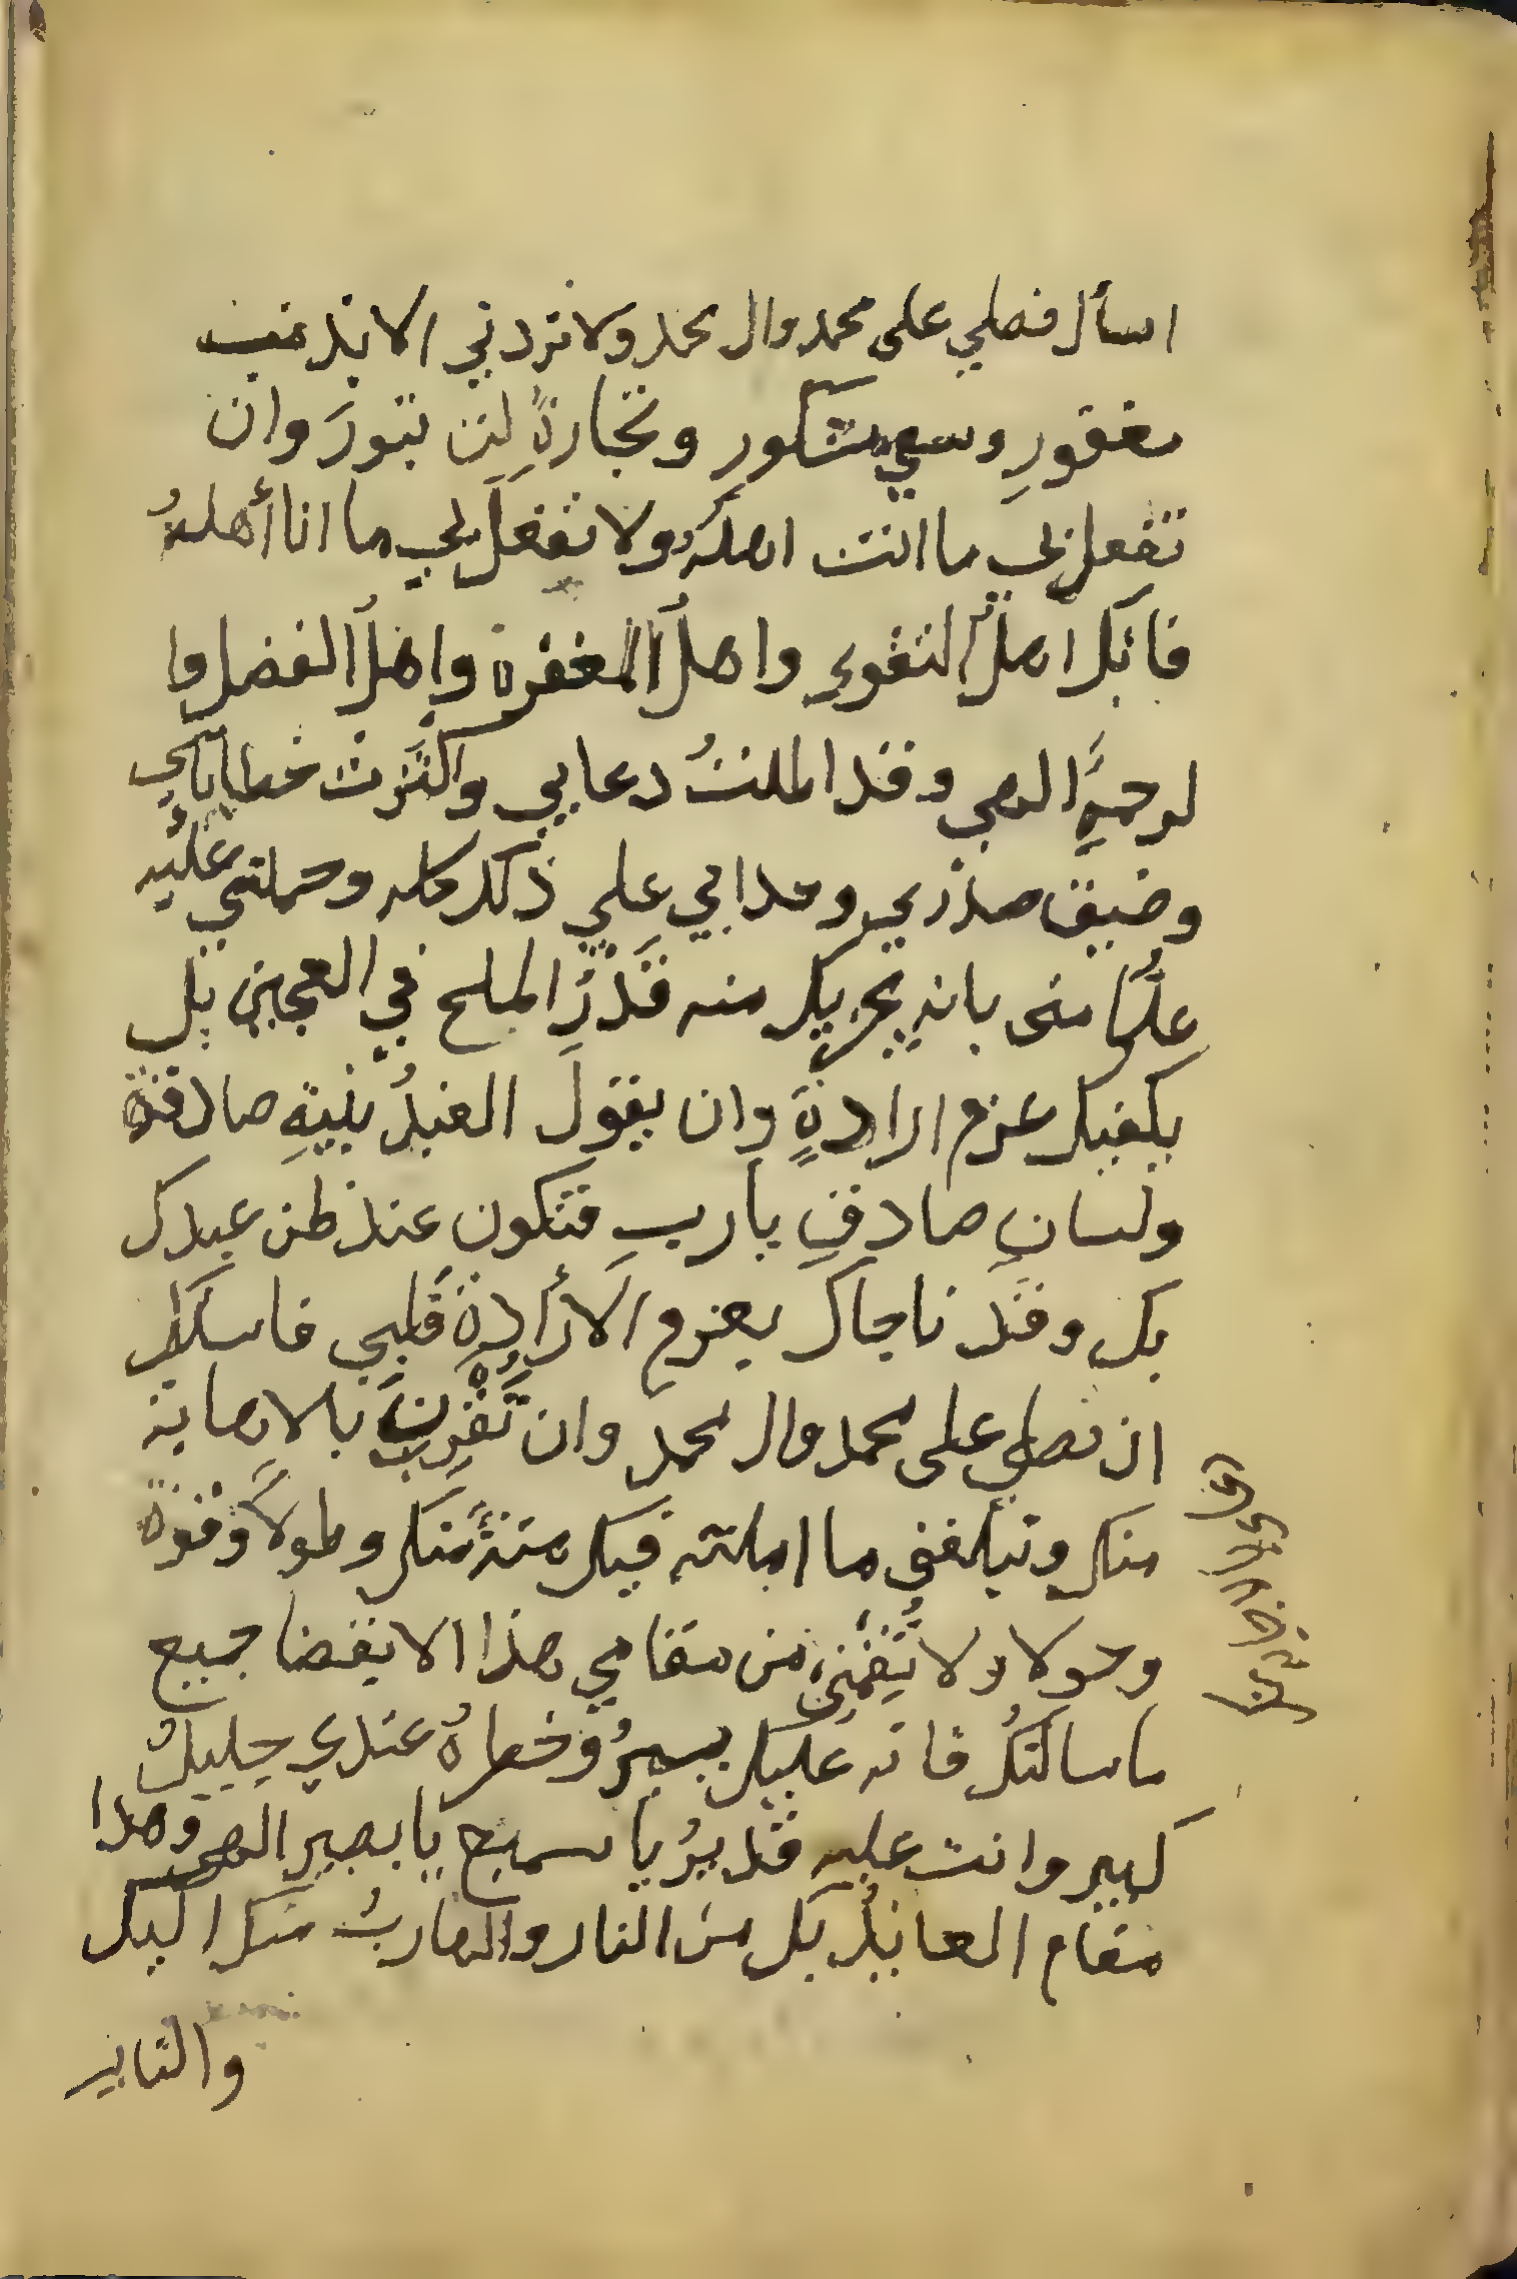 اسأل فصلي على محمد وال محمد ولا تردني الا بذنب
مغفورِ وسعي مشكورِ وتجارةٍ لن تبورَ وان
تفعل بي ما انت اهلهُ ولا تفعل بي ما انا أهلهُ
فانك اهلُ التقوى واهلُ المغفرة واهلُ الفضل وا
لرحمةِ الهي وقد اطلتُ دعايي واكثرت خطاياي
وضيق صدري وحدابي علي ذلك كله وحملني عليه
علمًا مني بانه يجزيك منه قَدْرَ الملح في العجين بل
يكفيك عزم ارادةٍ وان يقول العبدُ بنيةِ صادقة
ولسانِ صادقِ يا ربِ فتكون عند ظن عبدك
بك وقد ناجاك بعزم الارادة قلبي فاسئلك
ان تصلي على محمد وال محمد وان تُقْرِنَ بالاجابة
منك وتبلغني ما املته فيك منةً منك وطولاً وقوة
وحولا ولا تُقِمْني من مقامي هذا الا بقضا جميع
ما سالتكُ فانه عليك يسيرُ وخطرهُ عندي جليلٌ
كبير وانت عليه قديرُ يا سميع يا بصير الهي وهذا
مقام العايذُ بك من النار والهاربُ منك اليك
والتايب